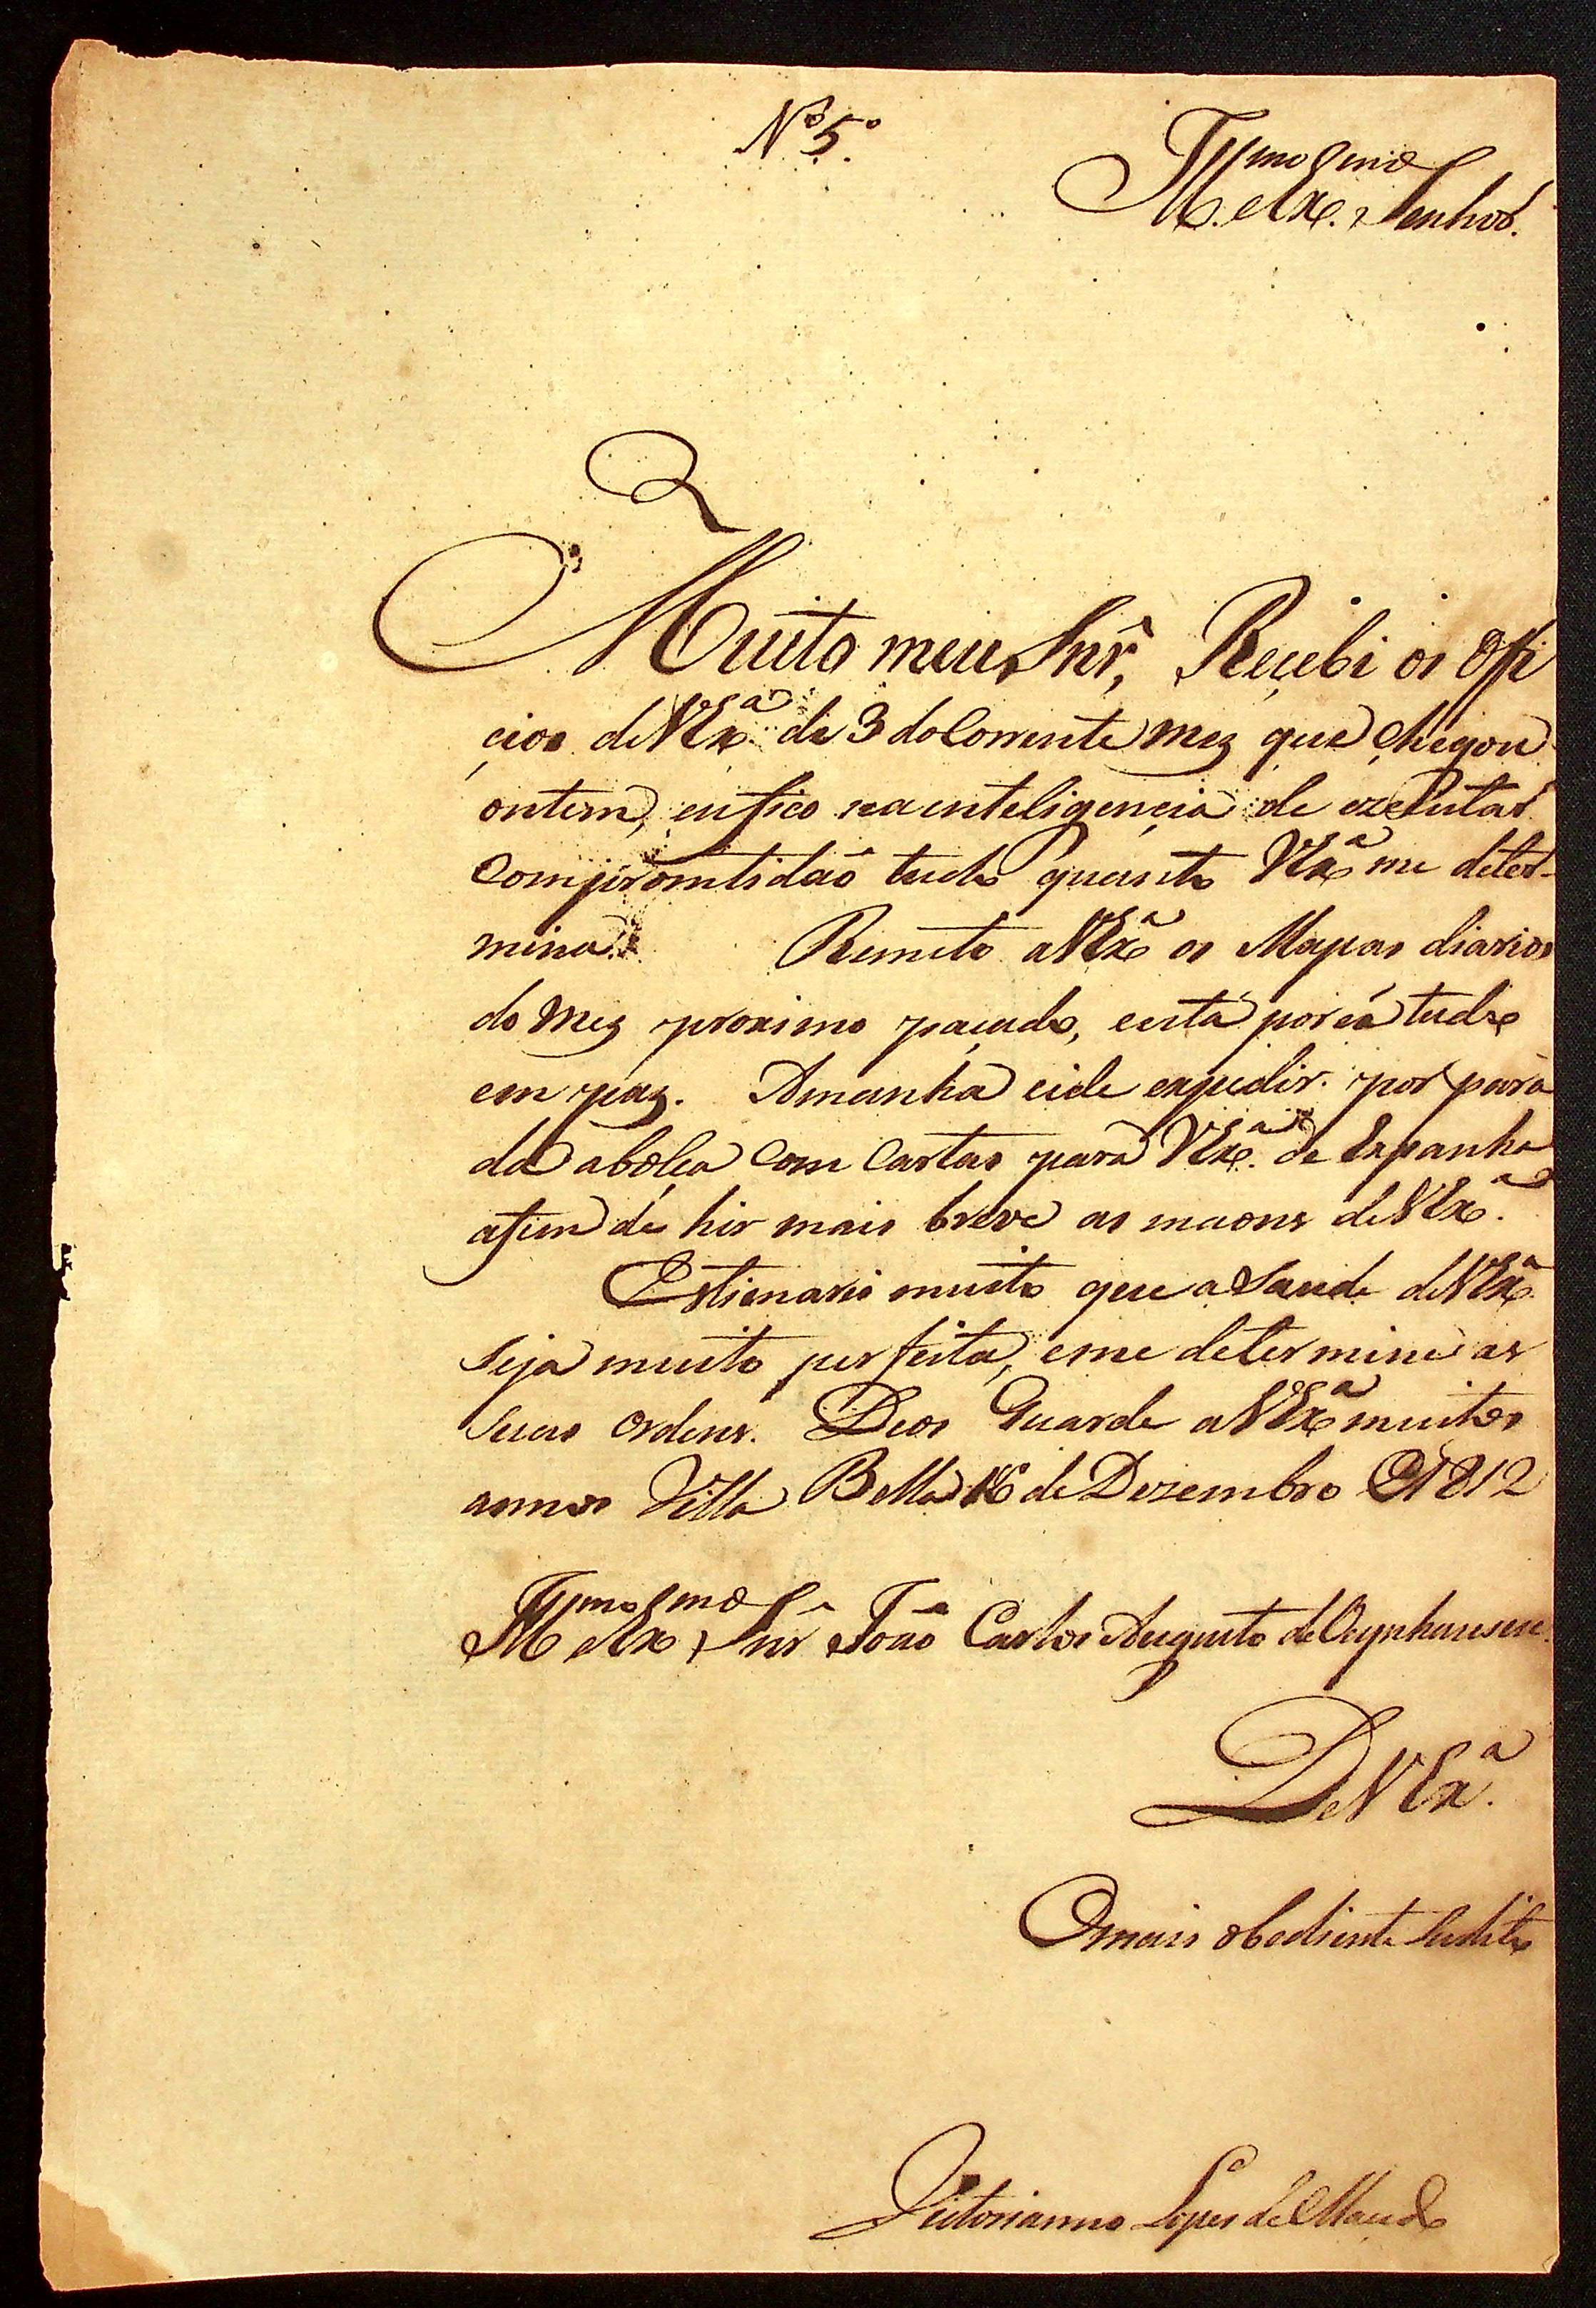 Nº 5º
Illmo. e Exmo. Senhor.
Muito meu Snr̂, Reçebi os Offi
çios de VExª. de 3 do Corrente mez que chegou
ontem, eu fico na enteligençia de ezecutar
com promtidaõ tudo quanto VExª me deter-
mina. Remeto a VExª os Mapas diarios
do mez proximo paçado, e está por cá tudo
em paz. Amanhã ei de expedir por para
da a bolça com Cartas para VExª. de Espanha
afim de hir mais breve as maons de VExª.
Estimarei muito que a Saude de VExª
Seja muito perfeita, e me determine as
Suas ordens. Deos Guarde a VExª muitos
annos Villa Bella 16 de Dezembro 1812
Illmo e Exmo Snr̂ Joaõ Carlos Augusto de Oeynhausen.
De VExª.
O mais obediente Subdito
Victorianno Lopes de Maçedo